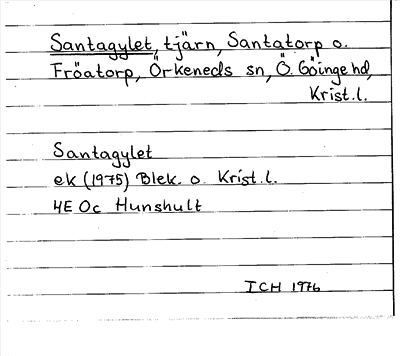 Santagylet, tjärn, Santatorp o.
Fröatorp, Örkeneds sn, Ö. Göinge hd,
Krist.l.
Santagylet
ek (1975) Blek. o. Krist.l.
4E Oc Hunshult
ICH 1976